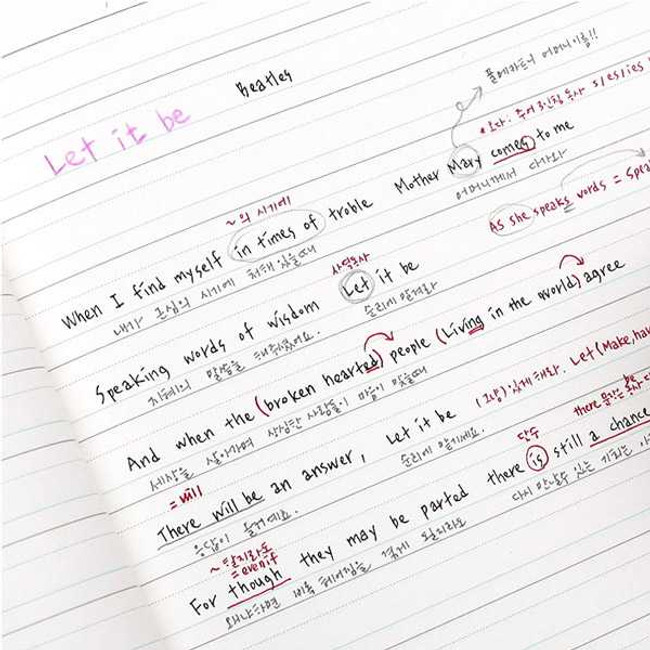 Let it be
Beatles
폴메카트니 어머니이름!!
오다: 주어 3인칭 동사 s/es/ies
~의 시기에
When I find myself in times of troble Mother Mary comes to me
내가 근심의 시기에 처해 있을때 어머니께서 다가와
As she speaks words =
사역동사
Speaking words of wisdom Let it be
지혜의 말씀을 해주셨어요. 순리에 맡겨라
And when the (broken hearted) people (Living in the world) agree
세상을 살아가며 상심한 사람들이 마음이 맞을때
(그냥) 있게 해라. Let (Make, hav
= will 단수 there
There will be an answer, Let it be there is still a chance
응답이 올거예요. 순리에 맡기세요. 다시 만날수 있는 기회는
~할지라도
= even if
For though they may be parted
왜냐하면 비록 헤어짐을 겪게 될지라도